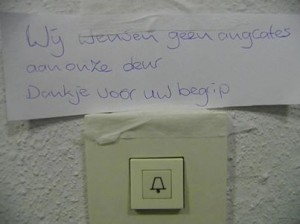 Wij wensen geen angcates
aan onze deur
Dankje voor uw begrip